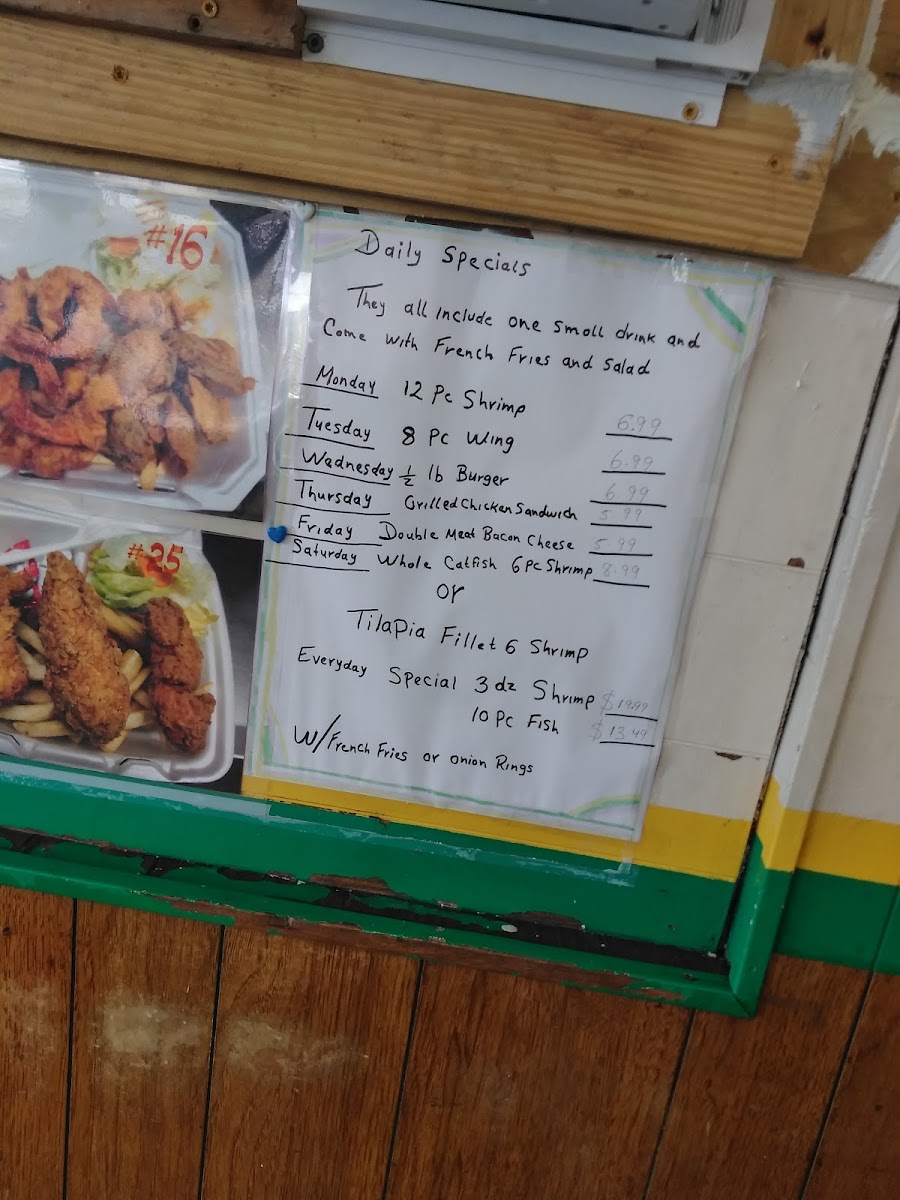 #16
#25
Daily Specials
They all include one small drink and
Come with French Fries and Salad
Monday 12 Pc Shrimp 6.99
Tuesday 8 Pc Wing 6.99
Wadnesday 1/2 lb Burger 6.99
Thursday Grilled Chicken Sandwich 5.99
Friday Double Meat Bacon Cheese 5.99
Saturday Whole Catfish 6 Pc Shrimp 8.99
or
Tilapia Fillet 6 Shrimp
Everyday Special 3 dz Shrimp $19.99
10 Pc Fish $13.49
W/French Fries or onion Rings